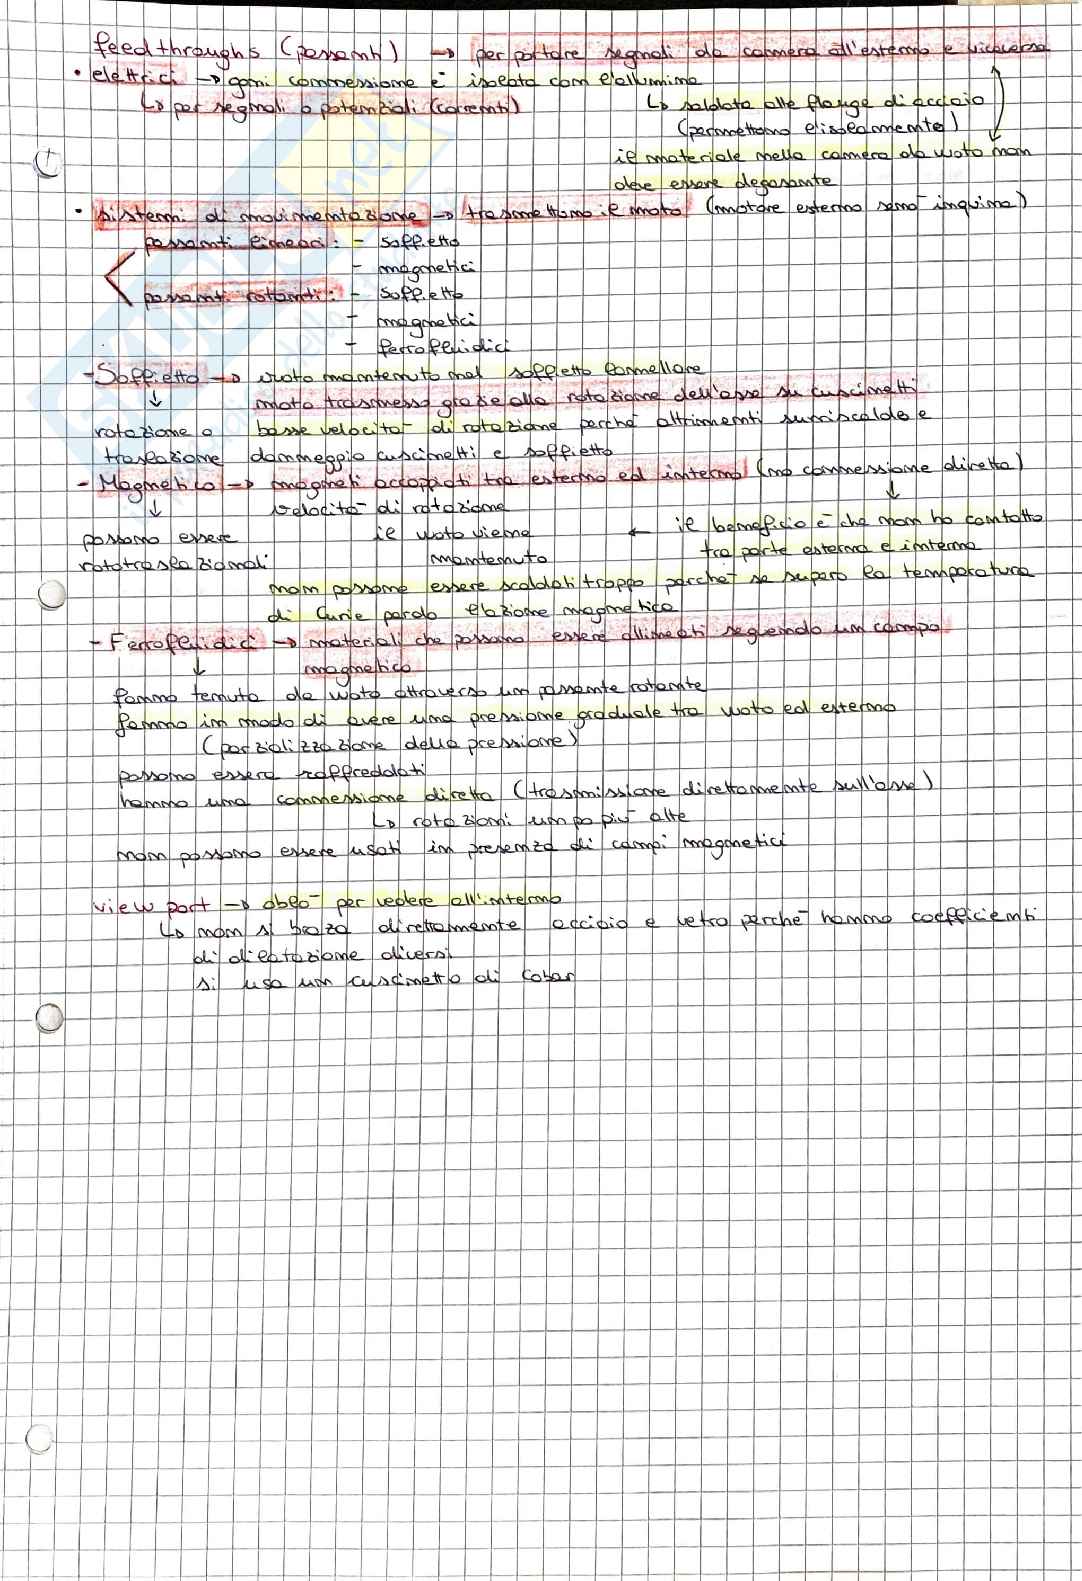 feedthroughs (passanti) → per portare segnali da camera all'esterno e viceversa
• elettrici → ogni connessione è isolata con l'allumina
↳ per segnali o potenziali (correnti) ↳ saldata alle flange di acciaio
(permettono l'isolamento)
il materiale nella camera da vuoto non
deve essere degasante
• sistemi di movimentazione → trasmettono il moto (motore esterno senò inquina)
passanti lineari: - soffietto
- magnetici
passanti rotanti: - soffietto
- magnetici
- ferrofluidici
- Soffietto → vuoto mantenuto nel soffietto lamellare
↓ moto trasmesso grazie alla rotazione dell'asse su cuscinetti
rotazione o basse velocità di rotazione perché altrimenti surriscalda e
traslazione danneggio cuscinetti e soffietto
- Magnetico → magneti accoppiati tra esterno ed interno (no connessione diretta)
↓ velocità di rotazione ↓
possono essere il vuoto viene ← il beneficio è che non ho contatto
rototraslazionali mantenuto tra parte esterna e interna
non possono essere scaldati troppo perché se supero la temperatura
di Curie perdo l'azione magnetica
- Ferrofluidici → materiali che possono essere allineati seguendo un campo
↓ magnetico
fanno tenuta da vuoto attraverso un passante rotante
fanno in modo di avere una pressione graduale tra vuoto ed esterno
(parzializzazione della pressione)
possono essere raffreddati
hanno una connessione diretta (trasmissione direttamente sull'asse)
↳ rotazioni un po più alte
non possono essere usati in presenza di campi magnetici
view port → oblò per vedere all'interno
↳ non si braza direttamente acciaio e vetro perché hanno coefficienti
di dilatazione diversi
si usa un cuscinetto di Cobar